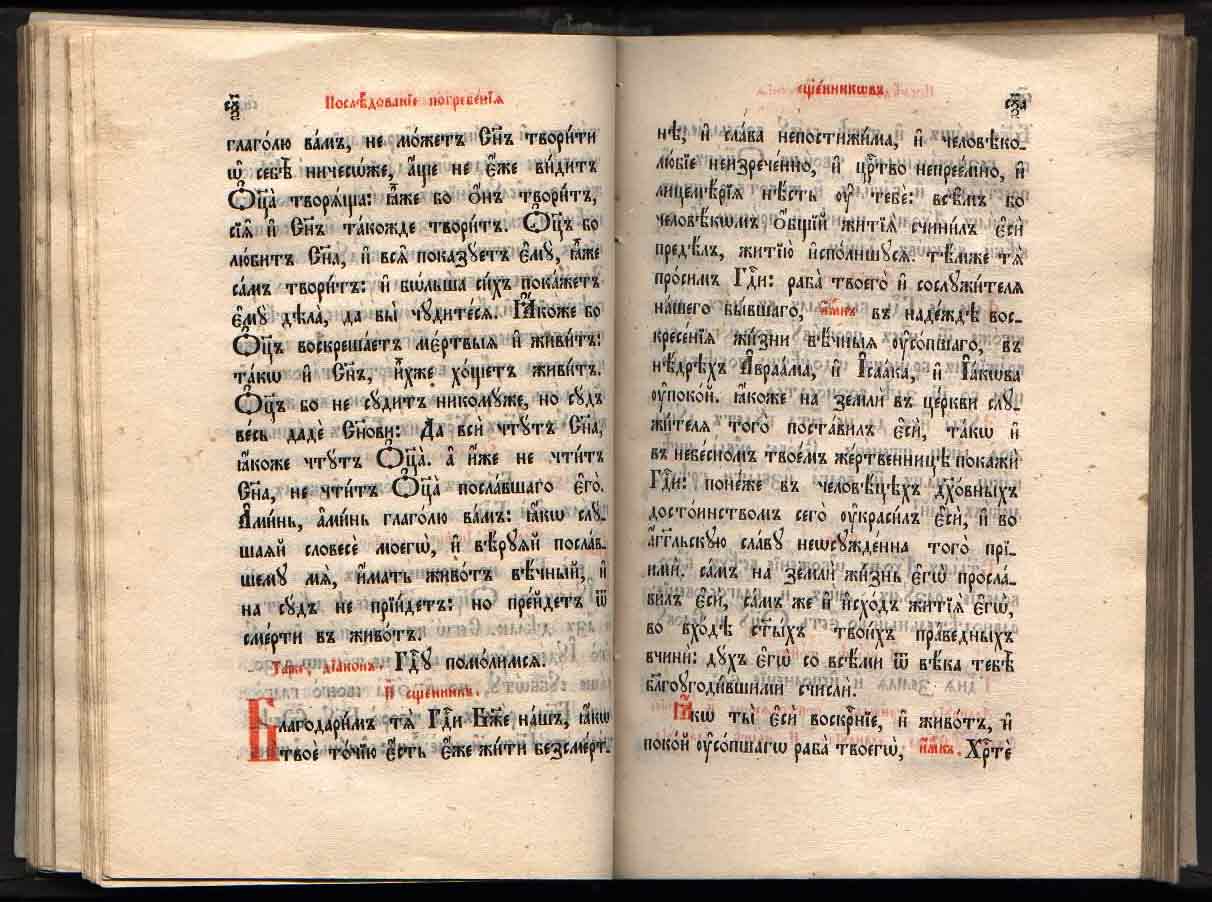 Послѣ́дованїе погребе́нїѧ
глаго́лю ва́мъ, не мо́жетъ Сн҃ъ твори́ти
ѡ҆ себѣ̀ ничесѡ́же, а҆́ще не є҆́же ви́дитъ
Ѻ҆ц҃а̀ творѧ́ща: ꙗ҆̀же бо ѻ҆́нъ твори́тъ,
сїѧ̑ и҆ Сн҃ъ та́кожде твори́тъ. Ѻ҆ц҃ъ бо
лю́битъ Сн҃а, и҆ всѧ̑ показꙋ́етъ є҆мꙋ̀, ꙗ҆̀же
са́мъ твори́тъ: и҆ бѡ́льша си́хъ пока́жетъ
є҆мꙋ̀ дѣла̀, да вы̀ чꙋдите́сѧ. Ꙗ҆́коже бо
Ѻ҆ц҃ъ воскреша́етъ мє́ртвыѧ и҆ живи́тъ:
та́кѡ и҆ Сн҃ъ, и҆̀хже хо́щетъ живи́тъ.
Ѻ҆ц҃ъ бо не сꙋ́дитъ никомꙋ́же, но сꙋ́дъ
ве́сь дадѐ Сн҃ови: Да всѝ чтꙋ́тъ Сн҃а,
ꙗ҆́коже чтꙋ́тъ Ѻ҆ц҃а̀. а҆ и҆́же не чти́тъ
Сн҃а, не чти́тъ Ѻ҆ц҃а̀ посла́вшаго є҆го̀.
А҆ми́нь, а҆ми́нь глаго́лю ва́мъ: ꙗ҆́кѡ слꙋ́-
шаѧй словесѐ моегѡ̀, и҆ вѣ́рꙋѧй посла́в-
шемꙋ мѧ̀, и҆́мать живо́тъ вѣ́чный, и҆
на сꙋ́дъ не прїи́детъ: но пре́йдетъ ѿ
сме́рти въ живо́тъ.
Та́же, дїа́конъ. Гдⷭ҇ꙋ помо́лимсѧ.
И҆ сщ҃е́нникъ.
Благодари́мъ тѧ̀ Гдⷭ҇и Бж҃е на́шъ, ꙗ҆́кѡ
твоѐ то́чїю є҆́сть є҆́же жи́ти безсме́рт-
сщ҃е́нникѡвъ
сѯ҃а
нѣ; и҆ сла́ва непостижи́ма, и҆ человѣко-
лю́бїе неизрече́нно, и҆ црⷭ҇тво непрее́мно, и҆
лицемѣ́рїѧ нѣ́сть ᲂу҆ тебє̀: всѣ̑мъ бо
человѣ́кѡмъ ѻ҆́бщїй житїѧ̀ счини́лъ є҆сѝ
предѣ́лъ, житїю̀ и҆спо́лншꙋсѧ. тѣ́мже тѧ̀
про́симъ Гдⷭ҇и: раба̀ твоего̀ и҆ сослꙋжи́телѧ
на́шего бы́вшаго, и҆́м҃къ въ наде́ждѣ вос-
кресе́нїѧ жи́зни вѣ́чныѧ ᲂу҆со́пшаго, въ
нѣ́дрѣхъ А҆враа́ма, и҆ І҆саа́ка, и҆ І҆а́кѡва
ᲂу҆поко́й. ꙗ҆́коже на землѝ въ це́ркви слꙋ-
жи́телѧ того̀ поста́вилъ є҆сѝ, та́кѡ и҆
въ небе́сномъ твое́мъ же́ртвенницѣ покажѝ
Гдⷭ҇и: поне́же въ человѣ́цѣхъ дх҃о́внымъ
досто́инствомъ сего̀ ᲂу҆кра́силъ є҆сѝ, и҆ во
а҆́гг҃льскꙋю сла́вꙋ неѡсꙋжде́нна того̀ прї-
имѝ. са́мъ на землѝ жи́знь є҆гѡ̀ просла́-
вилъ є҆сѝ, са́мъ же и҆ и҆схо́дъ житїѧ̀ є҆гѡ̀,
во вхо́дѣ ст҃ы́хъ твои́хъ пра́ведныхъ
вчинѝ: дꙋ́хъ є҆гѡ̀ со всѣ́ми ѿ вѣ́ка тебѣ̀
бл҃гоꙋгоди́вшими счислѝ.
Ꙗ҆́кѡ ты̀ є҆сѝ воскрⷭ҇нїе, и҆ живо́тъ, и҆
поко́й ᲂу҆со́пшагѡ раба̀ твоегѡ̀, и҆́м҃къ. Хрⷭ҇те